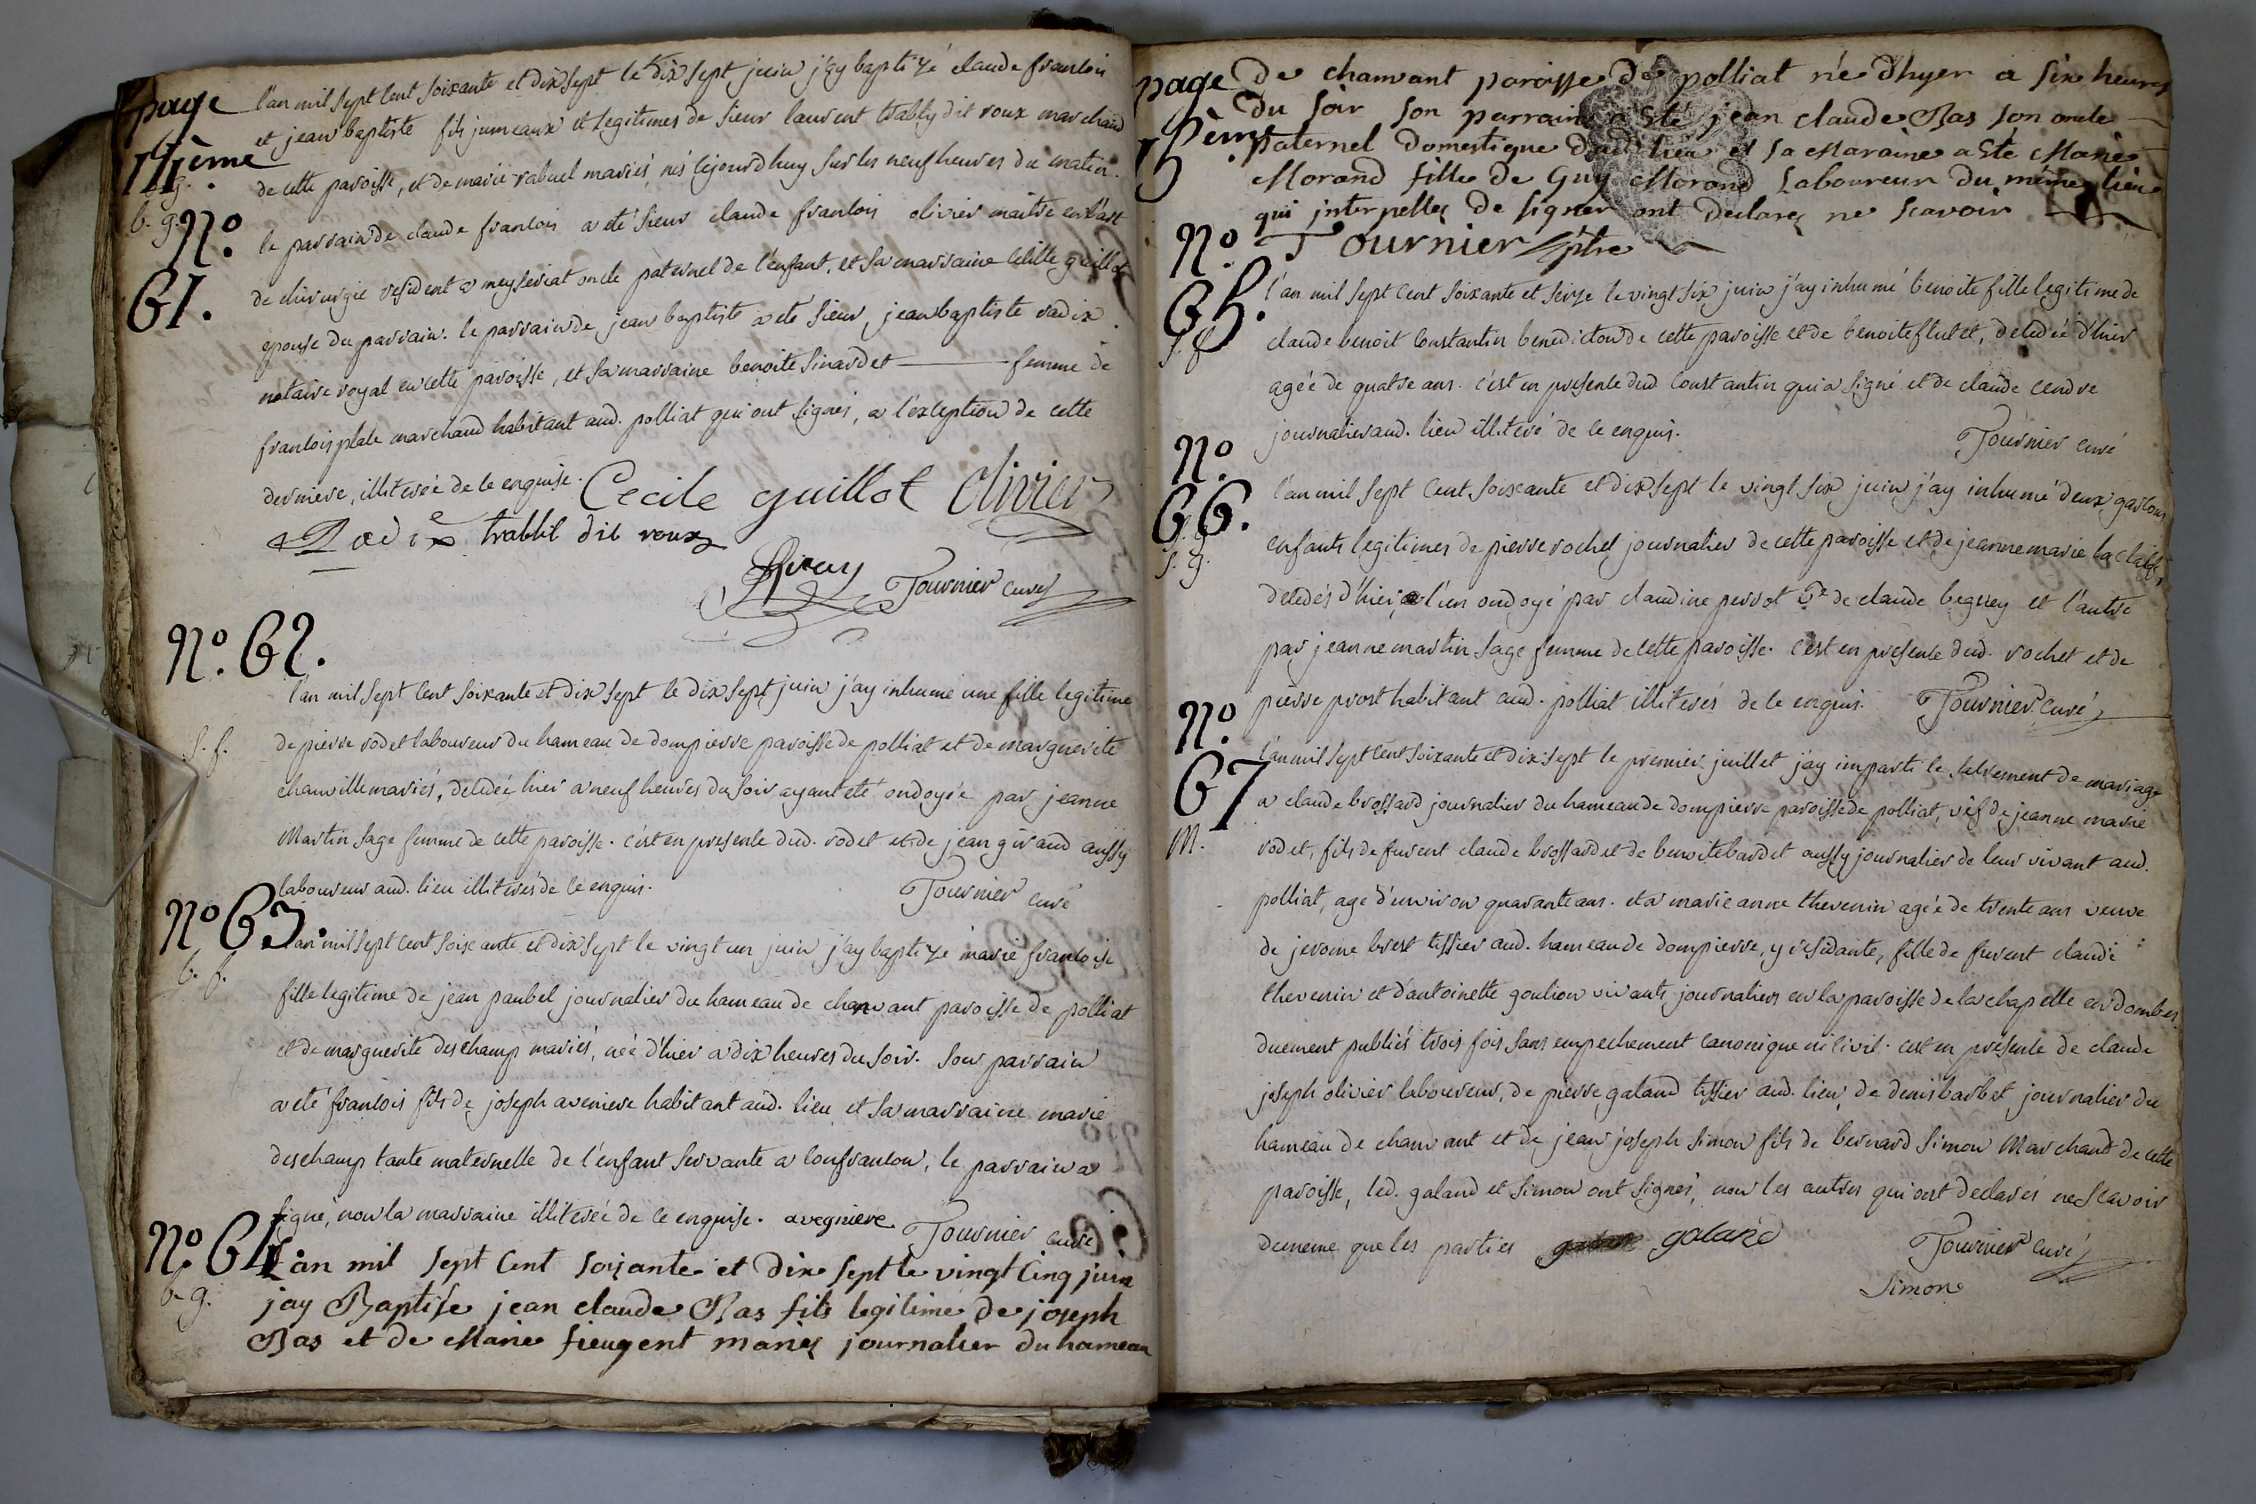 page
14ème
b. g.
b. g.
N.º
61.
l'an mil sept cent soixante et dix sept le dix sept juin j'ay baptizé claude francois
et jean baptiste fils jumeaux et legitimes de sieur laurent trably dit roux marchand
de cette paroisse, et de marie rabuel mariés, nés cejourdhuy sur les neuf heures du matin.
le parrain de claude francois a eté sieur claude francois olivier maitre en l'art
de chirurgie resident a meyseriat oncle paternel de l'enfant, et sa marraine cecille guillot
epouse du parrain. le parrain de jean baptiste a eté sieur jean baptiste radix
notaire royal en cette paroisse, et sa marraine benoite sinardet femme de
francois plate marchand habitant aud. polliat qui ont signés, a l'exception de cette
derniere, illiterée de ce enquise. Cecile guillot Olivier
Radix trablit dit roux
Tournier curé
N.º 62.
s. f.
l'an mil sept cent soixante et dix sept le dix sept juin j'ay inhumé une fille legitime
de pierre rodet laboureur du hameau de dompierre paroisse de polliat et de marguerite
chanville mariés, decedée hier a neuf heures du soir ayant eté ondoyée par jeanne
Martin sage femme de cette paroisse. c'est en presence dud. rodet et de jean giraud aussy
laboureur aud. lieu illiterés de ce enquis. Tournier curé
Nº 63.
b. f.
l'an mil sept cent soixante et dix sept le vingt un juin j'ay baptizé marie francoise
fille legitime de jean paubel journalier du hameau de chanvant paroisse de polliat
et de marguerite deschamp mariés, née d'hier a dix heures du soir. son parrain
a eté francois fils de joseph aveniere habitant aud. lieu et sa marraine marie
deschamp tante maternelle de l'enfant servante a confrancon, le parrain a
signé, non la marraine illiterée de ce enquise. avegniere Tournier curé
Nº 64.
b. g.
L'an mil sept Cent soixante et dix sept le vingt Cinq juin
jay Baptise jean claude Bas fils legitime de joseph
Bas et de Marie fieugent mariez journalier du hameau
page
15ème
de chanvant paroisse de polliat né d'hyer a six heures
du soir son parrain a Eté jean claude Bas son oncle
paternel domestique dud. lieu et sa Maraine a Eté Marie
Morand fille de Guy Morand Laboureur du même lieu
qui interpellez de signer ont declarez ne scavoir
Tournier ptre
N.º
65.
s. f.
l'an mil sept cent soixante et seize le vingt six juin j'ay inhumé benoite fille legitime de
claude benoit constantin benediction de cette paroisse et de benoite flutet, decedée d'hier
agée de quatre ans. c'est en presence dud. constantin qui a signé et de claude cendre
journalier aud. lieu illiteré de ce enquis. Tournier curé
N.º
66.
s. g.
s. g.
l'an mil sept cent soixante et dix sept le vingt six juin j'ay inhumé deux garcons
enfants legitimes de pierre rochet journalier de cette paroisse et de jeanne marie
decedés d'hier, l'un ondoyé par claudine perrot fe de claude begrey et l'autre
par jeanne martin sage femme de cette paroisse. c'est en presence dud. rochet et de
pierre prost habitant aud. polliat illiterés de ce enquis. Tournier curé
N.º
67
M.
l'an mil sept cent soixante et dix sept le premier juillet j'ay imparti le sacrement de mariage
a claude brossard journalier du hameau de dompierre paroisse de polliat, vef de jeanne marie
rodet, fils de furent claude brossard et de benoite bardet aussy journalier de leur vivant aud.
polliat, age d'environ quarante ans. et a marie anne thevenin agée de trente ans veuve
de jerome brest tissier aud. hameau de dompierre, y residante, fille de furent claude
thevenin et d'antoinette goulion vivants journaliers en la paroisse de la chapelle en dombes.
duement publiés trois fois sans empechement canonique ni civil. c'est en presence de claude
joseph olivier laboureur, de pierre galand tissier aud. lieu, de denis barbet journalier du
hameau de chanvant et de jean joseph simon fils de bernard simon Marchand de cette
paroisse, led. galand et simon ont signés, non les autres qui ont declarés ne scavoir
de meme que les parties galand Tournier curé
Simon